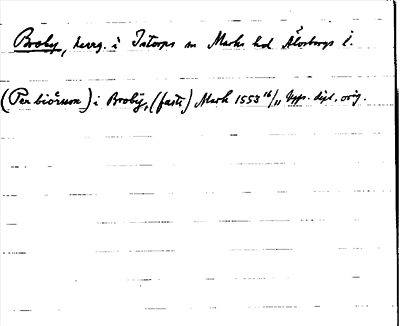 Broby, herrg. i Istorps sn Marks hd Älvsborgs l.
(Per biörsson) i Broby, (faste) Mark 1553 16/11 Upps. dipl. orig.